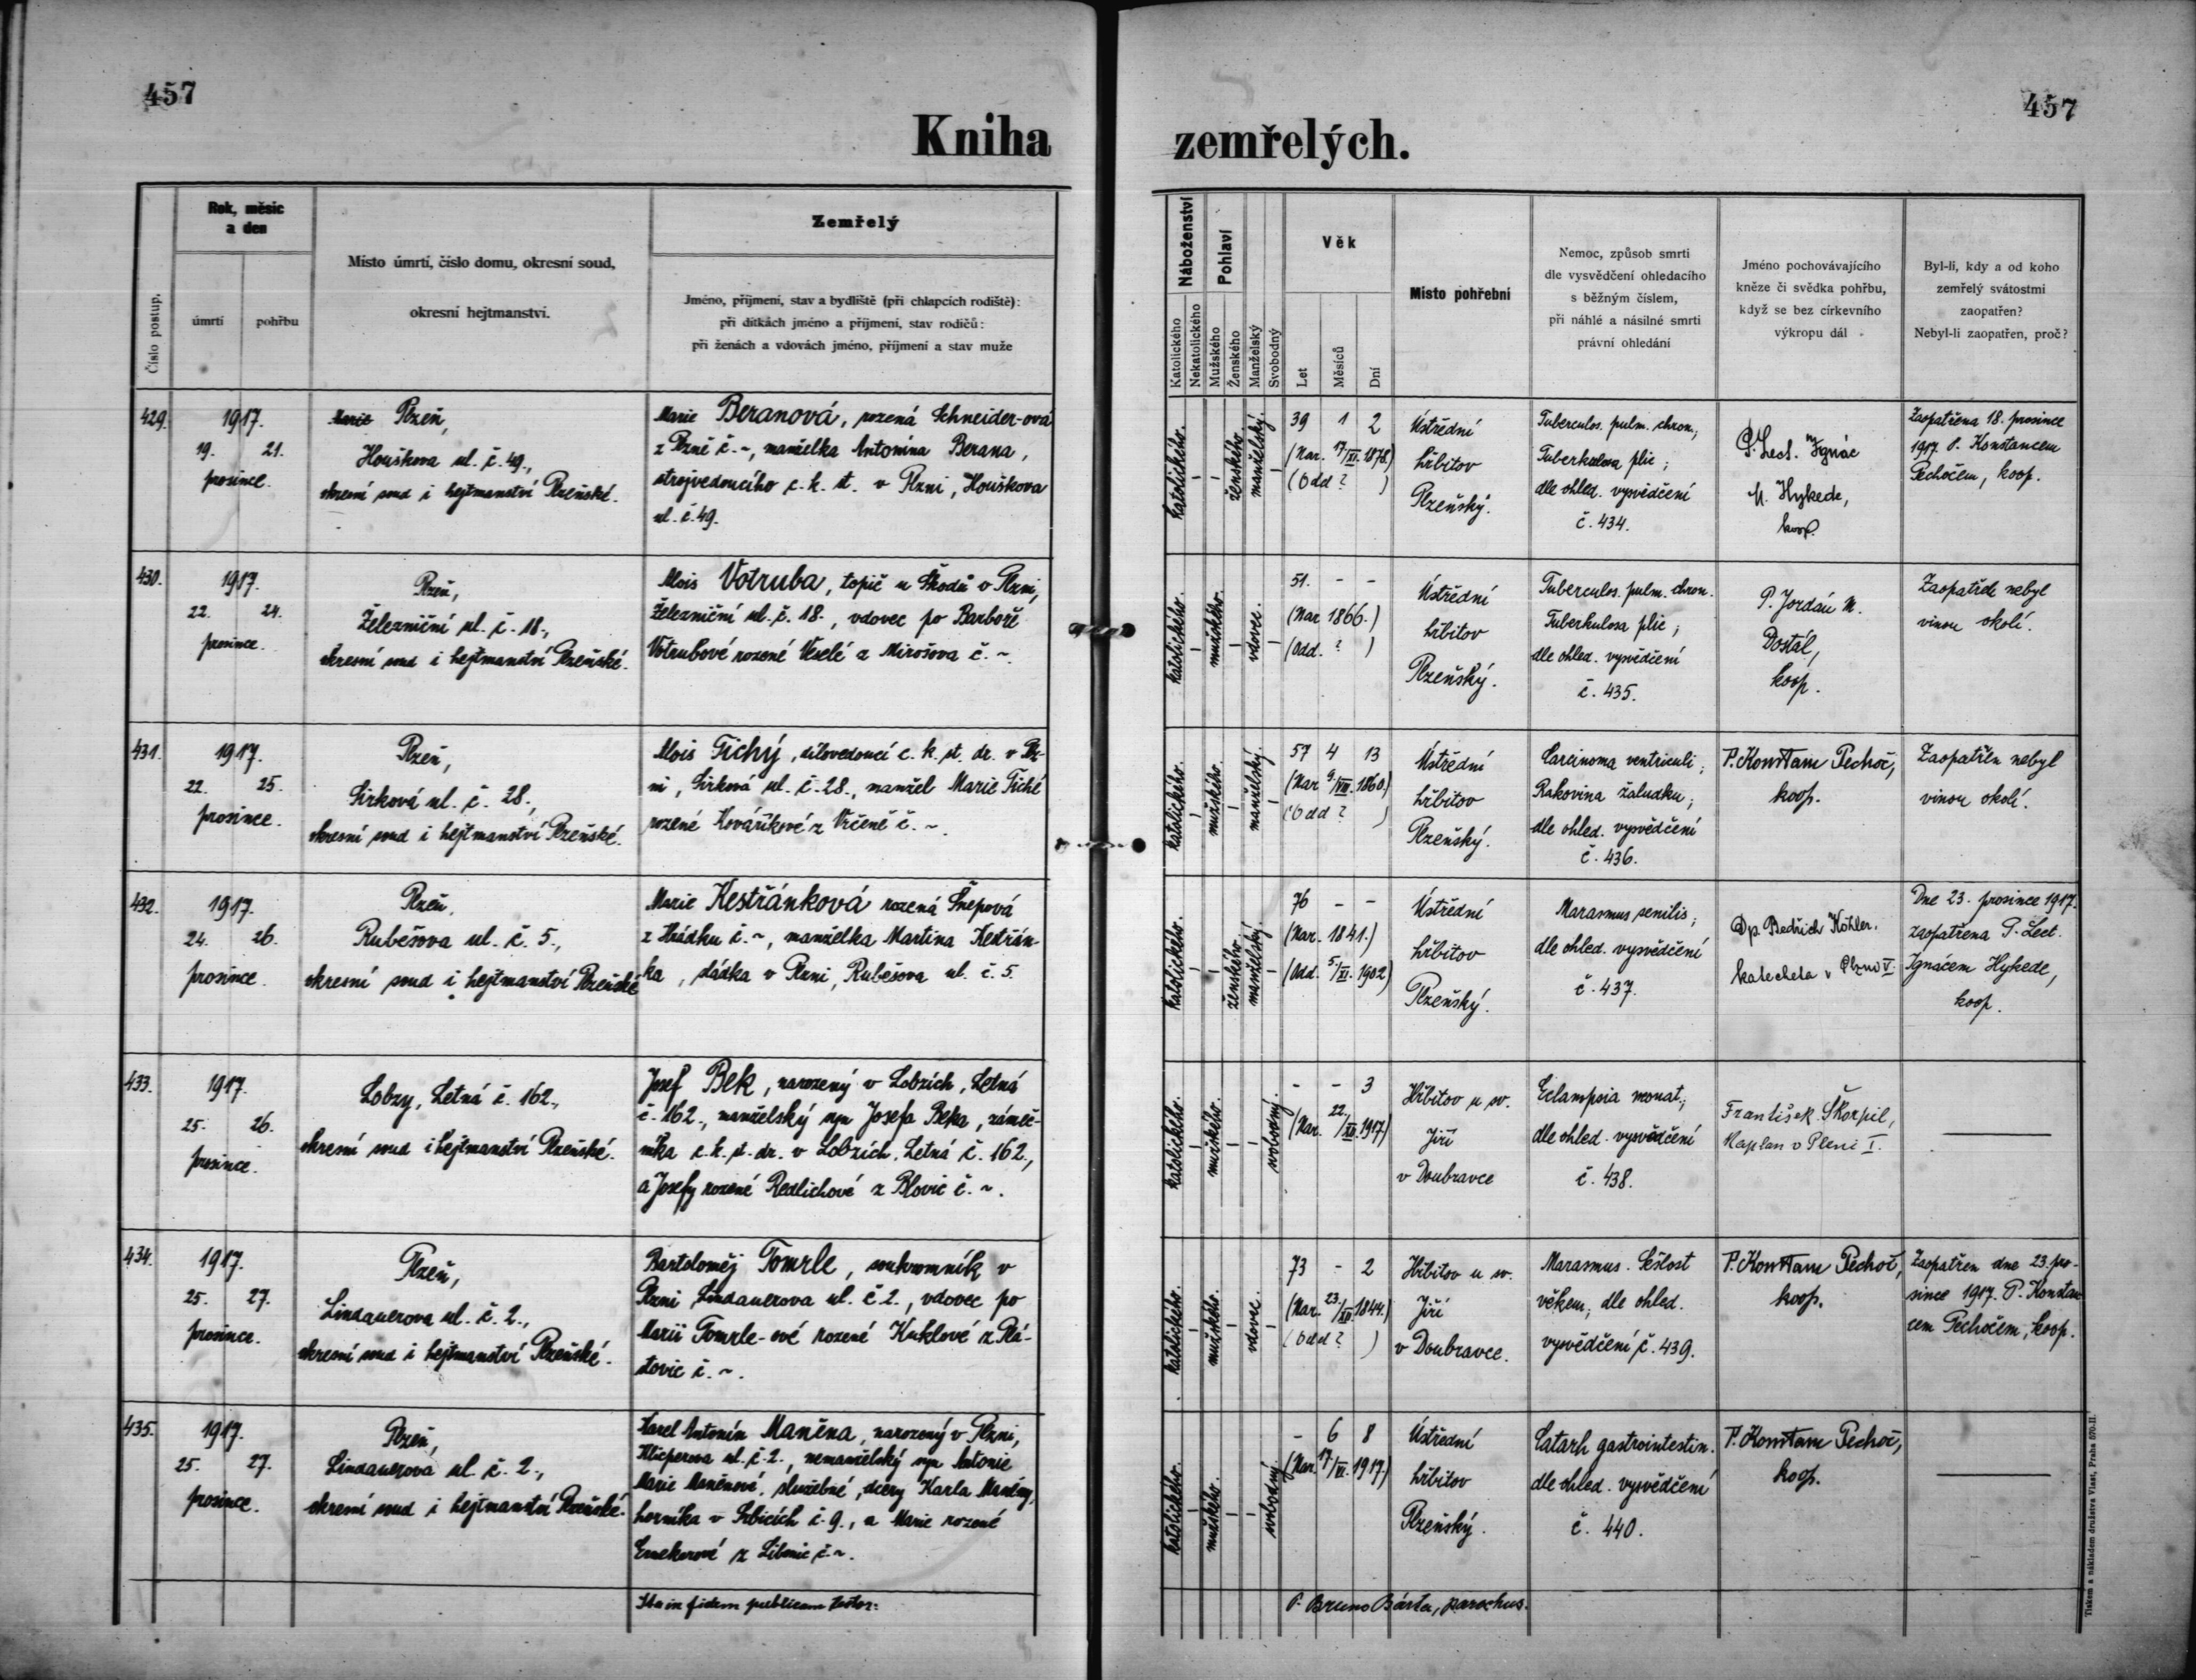 457
457
Kniha zemřelých.
Číslo postup.
Rok, měsíc
a den
úmrtí
pohřbu
Místo úmrtí, číslo domu, okresní soud,
okresní hejtmanství.
Zemřelý
Jméno, příjmení, stav a bydliště (při chlapcích rodiště):
při dítkách jméno a příjmení, stav rodičů:
při ženách a vdovách jméno, příjmení a stav muže
Náboženství
Katolického
Nekatolického
Pohlaví
Mužského
Ženského
Manželský
Svobodný
Věk
Let
Měsíců
Dní
Místo pohřební
Nemoc, způsob smrti
dle vysvědčení ohledacího
s běžným číslem,
při náhlé a násilné smrti
právní ohledání
Jméno pochovávajícího
kněze či svědka pohřbu,
když se bez církevního
výkropu dál
Byl-li, kdy a od koho
zemřelý svátostmi
zaopatřen?
Nebyl-li zaopatřen, proč?
429.
1917.
19. 21.
prosince.
Marie Plzeň,
Houškova ul. č. 49.,
okresní soud i hejtmanství Plzeňské.
Marie Beranová, rozená Schneider-ová
z Plzně č. ~, manželka Antonína Berana,
strojvedoucího c. k. st. v Plzni, Houškova
ul. č. 49.
katolického.
ženského.
manželský.
39 1 2
(Nar. 17/XI. 1878.)
(Odd ? )
Ústřední
hřbitov
Plzeňský.
Tuberculos. pulm. chron.,
Tuberkulosa plic;
dle ohled. vysvědčení
č. 434.
P. Lect. Ignác
M. Hykede,
koop.
Zaopatřena 18. prosince
1917 P. Konstancem
Pechočem, koop.
430.
1917.
22. 24.
prosince.
Plzeň,
Železniční ul. č. 18.,
okresní soud i hejtmanství Plzeňské.
Alois Votruba, topič u Škodů v Plzni,
Železniční ul. č. 18., vdovec po Barboře
Votrubové rozené Veselé z Mirošova č. ~.
katolického.
mužského.
vdovec.
51. - -
(Nar 1866.)
(Odd. ? )
Ústřední
hřbitov
Plzeňský.
Tuberculos. pulm. chron.
Tuberkulosa plic;
dle ohled. vysvědčení
č. 435.
P. Jordán M.
Dostál,
koop.
Zaopatřen nebyl
vinou okolí.
431.
1917.
22. 25.
prosince.
Plzeň,
Sirková ul. č. 28.,
okresní soud i hejtmanství Plzeňské.
Alois Tichý, dílovedoucí c. k. st. dr. v Plz-
ni, Sirková ul. č. 28., manžel Marie Tiché
rozené Kováříkové z Vrčeně č. ~.
katolického.
mužského.
manželský.
57 4 13
(Nar 9/VIII. 1860.)
(Odd ? )
Ústřední
hřbitov
Plzeňský.
Carcinoma ventriculi;
Rakovina žaludku;
dle ohled. vysvědčení
č. 436.
P. Konstanc Pechoč,
koop.
Zaopatřen nebyl
vinou okolí.
432.
1917.
24. 26.
prosince.
Plzeň,
Rubešova ul. č. 5.,
okresní soud i hejtmanství Plzeňské
Marie Kestřánková rozená Šnepová
z Hrádku č. ~, manželka Martina Kestřán-
ka, sládka v Plzni, Rubešova ul. č. 5.
katolického.
ženského.
manželský.
76 - -
(Nar. 1841.)
(Odd. 5/XI. 1902)
Ústřední
hřbitov
Plzeňský.
Marasmus senilis;
dle ohled. vysvědčení
č. 437.
Dp. Bedřich Köhler,
katecheta v Plzni V.
Dne 23. prosince 1917.
zaopatřena P. Lect.
Ignácem Hykede,
koop.
433.
1917.
25. 26.
prosince.
Lobzy, Letná č. 162.,
okresní soud i hejtmanství Plzeňské.
Josef Bek, narozený v Lobzích, Letná
č. 162., manželský syn Josefa Beka, zámeč-
níka c. k. st. dr. v Lobzích, Letná č. 162.,
a Josefy rozené Redlichové z Blovic č. ~.
katolického.
mužského.
svobodný.
- - 3
(Nar. 22./XII. 1917)
Hřbitov u sv.
Jiří
v Doubravce
Eclampsia monat.;
dle ohled. vysvědčení
č. 438.
František Škorpil,
Kaplan v Plzni I.
434.
1917.
25. 27.
prosince.
Plzeň,
Lindauerova ul. č. 2.,
okresní soud i hejtmanství Plzeňské.
Bartoloměj Tomrle, soukromník v
Plzni Lindauerova ul. č. 2., vdovec po
Marii Tomrle-ové rozené Kuklové z Plá-
stovic č. ~.
katolického.
mužského.
vdovec.
73 - 2
(Nar. 23./XII. 1844.)
(Odd ? )
Hřbitov u sv.
Jiří
v Doubravce.
Marasmus. Sešlost
věkem; dle ohled.
vysvědčení č. 439.
P. Konstanc Pechoč,
koop.
Zaopatřen dne 23. pro-
since 1917. P. Konstan
cem Pechočem, koop.
435.
1917.
25. 27.
prosince.
Plzeň,
Lindauerova ul. č. 2.,
okresní soud i hejtmanství Plzeňské.
Karel Antonín Maněna, narozený v Plzni,
Klicperova ul. č. 2., nemanželský syn Antonie
Marie Maněnové, služebné, dcery Karla Maněny,
horníka v Srbicích č. 9., a Marie rozené
z Libonic č. ~.
katolického.
mužského.
svobodný.
- 6 8
(Nar. 17/VI. 1917.)
Ústřední
hřbitov
Plzeňský.
Catarh gastrointestin.
dle ohled. vysvědčení
č. 440.
P. Konstanc Pechoč,
koop.
Ita in fidem publicam testor:
P. Bruno Bárta, parochus.
Tiskem a nákladem družstva Vlast, Praha 570-II.